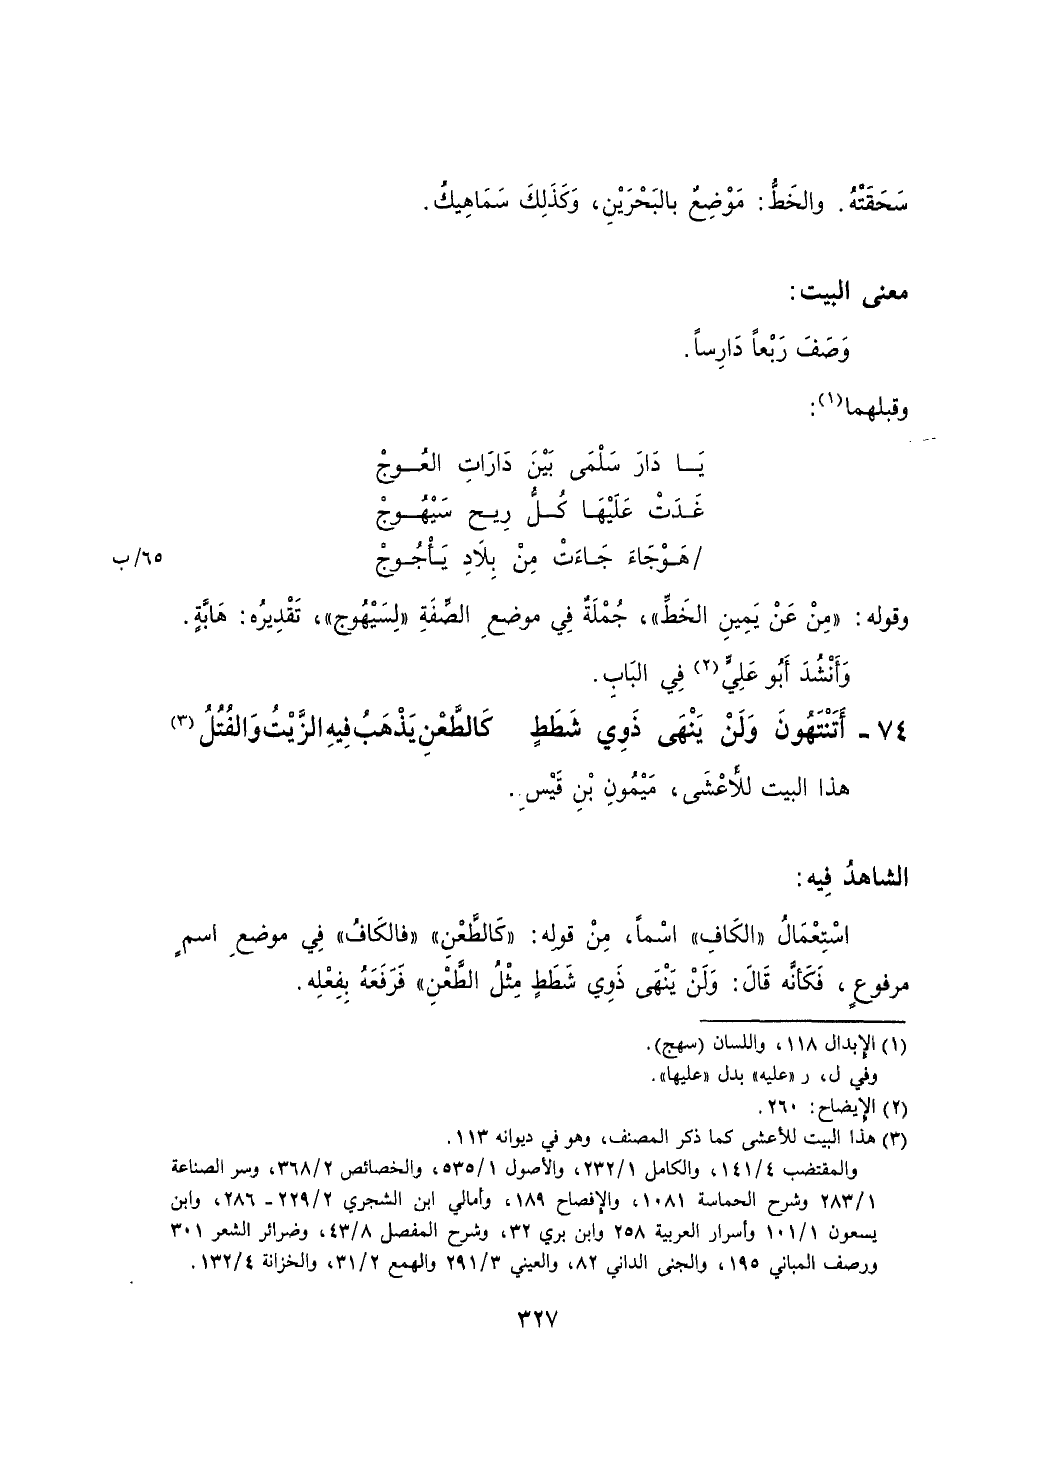 سَحَقَتْهُ. والخَطُّ: مَوْضِعٌ بالبَحْرَيْنِ، وَكَذَلِكَ سَمَاهِيكُ.
معنى البيت:
وَصَفَ رَبْعاً دَارِساً.
وقبلهما(١):
يَـا دَارَ سَلْمَى بَيْنَ دَارَاتِ العُـوجْ
غَـدَتْ عَلَيْهَا كُـلُّ رِيـح سَيْهُـوجْ
/هَـوْجَاءَ جَـاءَتْ مِنْ بِلَادِ يَـأْجُـوجْ
٦٥/ب
وقوله: «مِنْ عَنْ يَمِينِ الخَطِّ»، جُمْلَةٌ فِي موضعِ الصِّفَةِ «لِسَيْهُوج»، تَقْدِيرُه: هَابَّةٍ.
وَأَنْشُدَ أَبُو عَلِيٍّ(٢) فِي البَابِ.
٧٤ - أَتَنْتَهُونَ وَلَنْ يَنْهَى ذَوِي شَطَطٍ كَالطَّعْنِ يَذْهَبُ فِيهِ الزَّيْتُ وَالفُتُلُ (٣)
هذا البيت للأَعْشَى، مَيْمُونِ بْنِ قَيْسٍ.
الشاهدُ فِيه:
اسْتِعْمَالُ «الكَافِ» اسْماً، مِنْ قولِه: «كَالطَّعْنِ» «فالكَافُ» فِي موضعِ اسمٍ
مرفوعٍ، فَكَأنَّه قَالَ: وَلَنْ يَنْهَى ذَوِي شَطَطٍ مِثْلُ الطَّعْنِ» فَرَفَعَهُ بِفِعْلِه.
(١) الإبدال ١١٨، واللسان (سهج).
وفي ل، ر «عليه» بدل «عليها».
(٢) الإيضاح: ٢٦٠.
(٣) هذا البيت للأعشى كما ذكر المصنف، وهو في ديوانه ١١٣.
والمقتضب ١٤١/٤، والكامل ٢٣٢/١، والأصول ٥٣٥/١، والخصائص ٣٦٨/٢، وسر الصناعة
٢٨٣/١ وشرح الحماسة ١٠٨١، والإفصاح ١٨٩، وأمالي ابن الشجري ٢٢٩/٢ - ٢٨٦، وابن
يسعون ١٠١/١ وأسرار العربية ٢٥٨ وابن بري ٣٢، وشرح المفصل ٤٣/٨، وضرائر الشعر ٣٠١
ورصف المباني ١٩٥، والجنى الداني ٨٢، والعيني ٢٩١/٣ والهمع ٣١/٢، والخزانة ١٣٢/٤.
٣٢٧